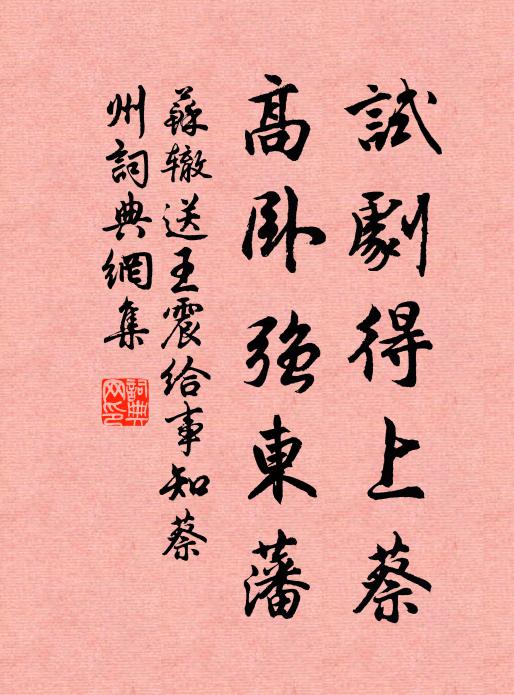 試劇得上蔡
高卧強東藩
蘇辙送王震给事知蔡
州詞典網集
詞典
网印